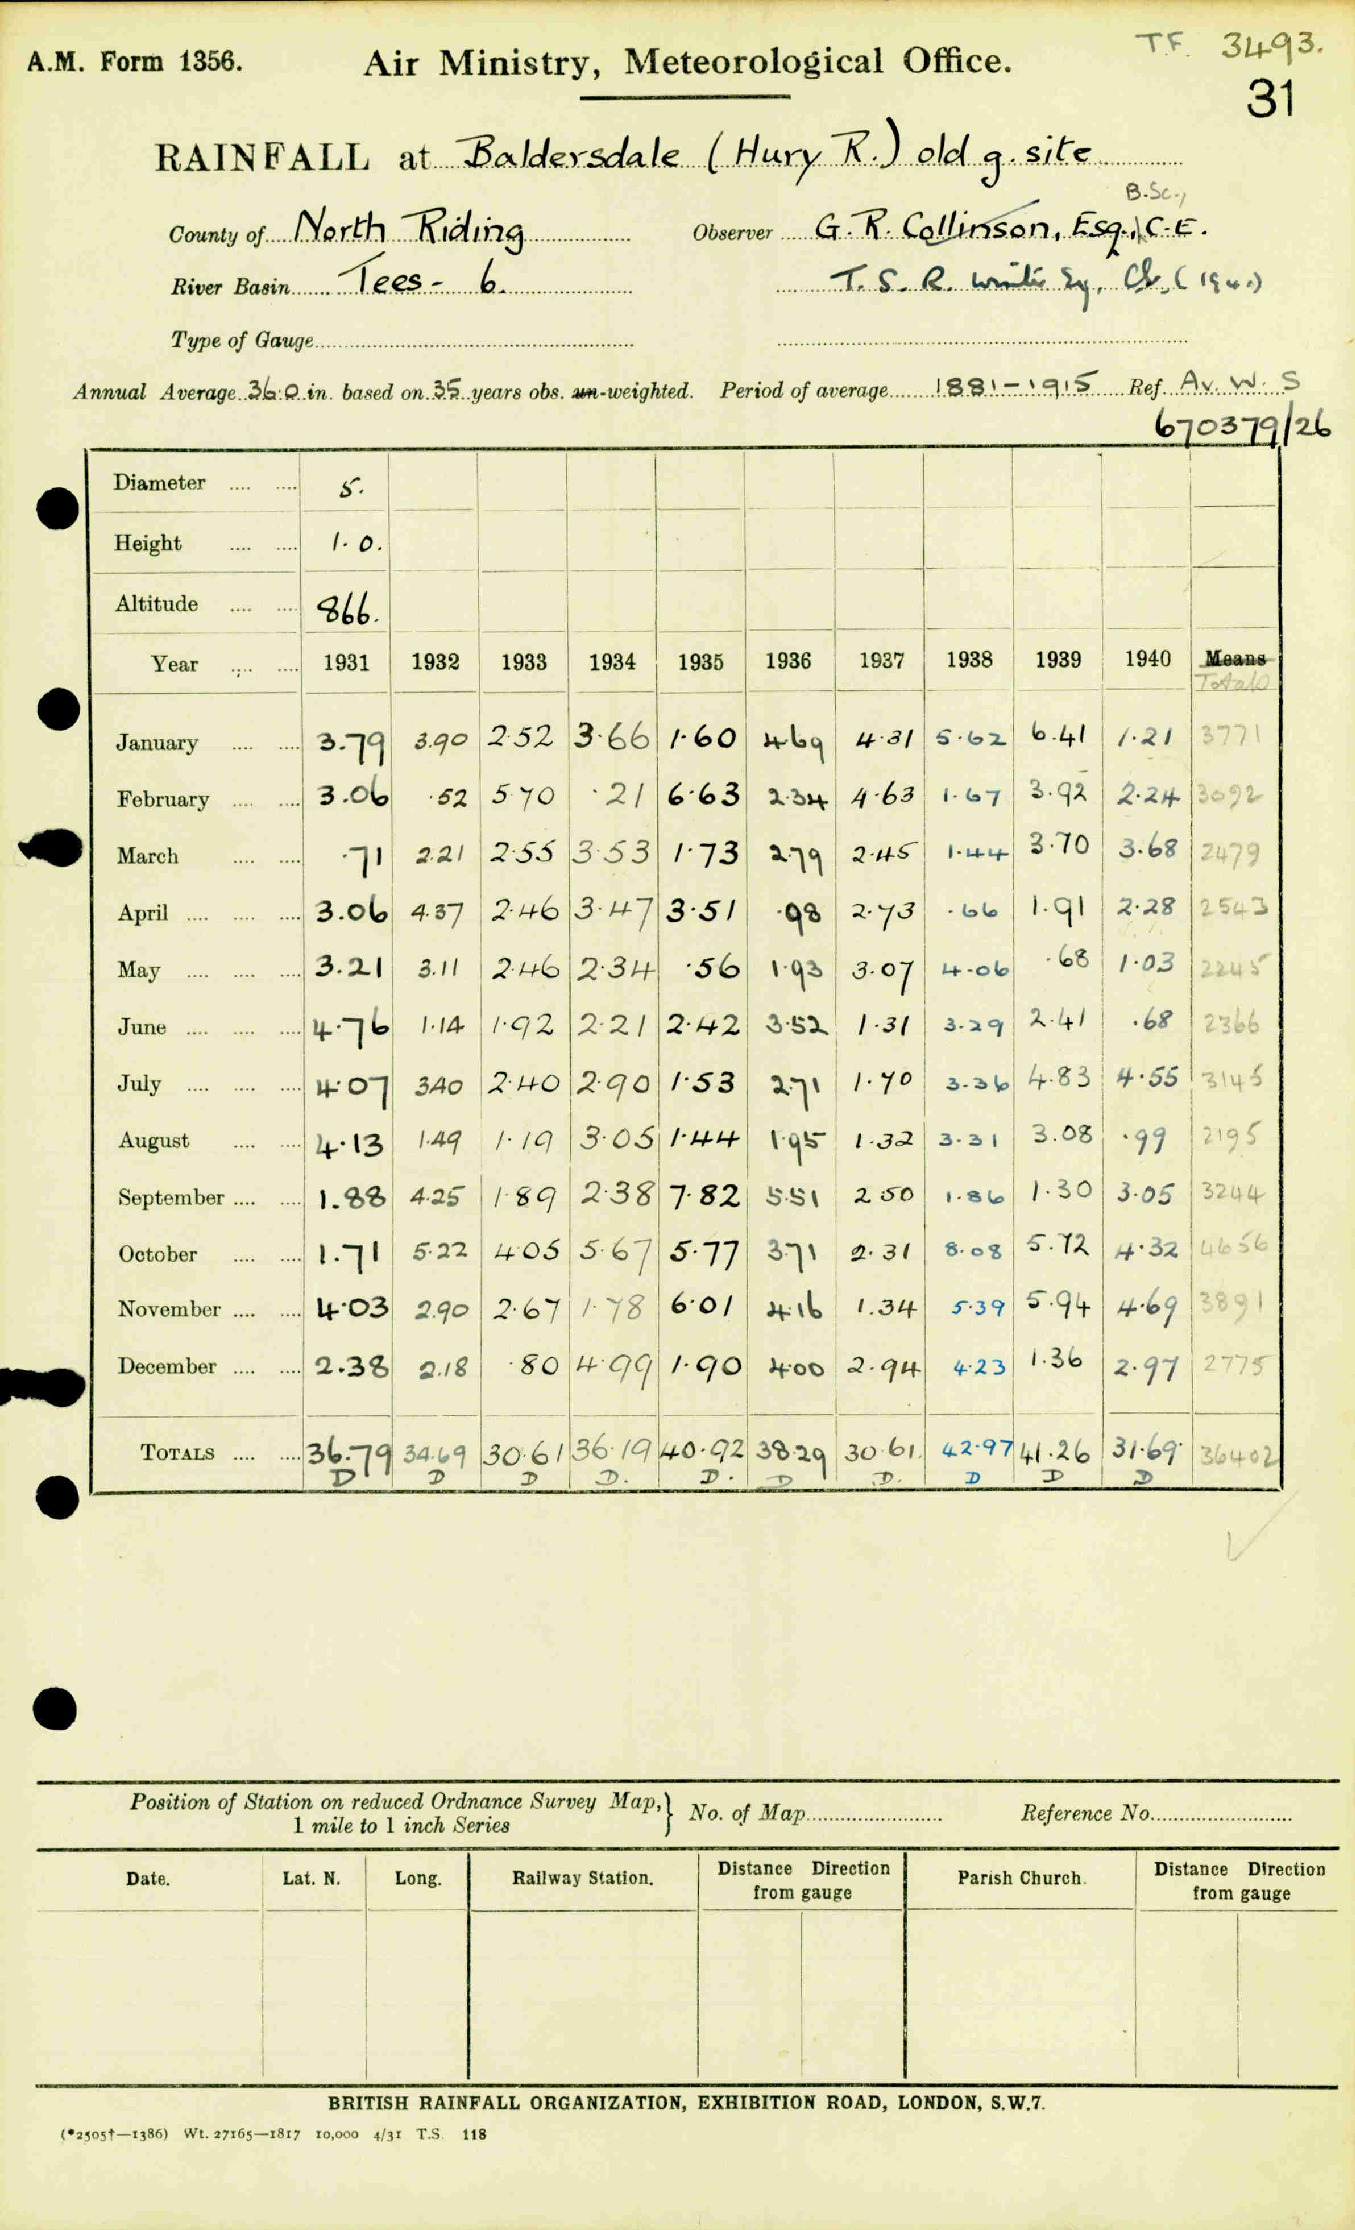 T.F. 3493.
A.M. Form 1356.
Air Ministry, Meteorological Office.
31
RAINFALL at Baldersdale (Hury R.) old g. site
B.Sc.,
County of North Riding Observer G. R. Collinson, Esq., C.E.
River Basin Tees - 6. T. S. R. Esq, (1940)
Type of Gauge
Annual Average 36.0 in. based on 35 years obs. un-weighted. Period of average 1881-1915 Ref. Av. W. S
670379/26
Diameter 5.
Height 1.0.
Altitude 866.
Year 1931 1932 1933 1934 1935 1936 1937 1938 1939 1940 Means
Totals
January 3.79 3.90 2.52 3.66 1.60 4.69 4.31 5.62 6.41 1.21 3771
February 3.06 .52 5.70 .21 6.63 2.34 4.63 1.67 3.92 2.24 3092
March .71 2.21 2.55 3.53 1.73 2.79 2.45 1.44 3.70 3.68 2479
April 3.06 4.37 2.46 3.47 3.51 .98 2.73 .66 1.91 2.28 2543
May 3.21 3.11 2.46 2.34 .56 1.93 3.07 4.06 .68 1.03 2245
June 4.76 1.14 1.92 2.21 2.42 3.52 1.31 3.29 2.41 .68 2366
July 4.07 3.40 2.40 2.90 1.53 2.71 1.70 3.36 4.83 4.55 3145
August 4.13 1.49 1.19 3.05 1.44 1.95 1.32 3.31 3.08 .99 2195
September 1.88 4.25 1.89 2.38 7.82 5.51 2.50 1.86 1.30 3.05 3244
October 1.71 5.22 4.05 5.67 5.77 3.71 2.31 8.08 5.72 4.32 4656
November 4.03 2.90 2.67 1.78 6.01 4.16 1.34 5.39 5.94 4.69 3891
December 2.38 2.18 .80 4.99 1.90 4.00 2.94 4.23 1.36 2.97 2775
TOTALS 36.79 34.69 30.61 36.19 40.92 38.29 30.61 42.97 41.26 31.69 36402
D D D D. D. D D. D D D
Position of Station on reduced Ordnance Survey Map, 1 mile to 1 inch Series } No. of Map Reference No.
Date. Lat. N. Long. Railway Station. Distance Direction from gauge Parish Church. Distance Direction from gauge
BRITISH RAINFALL ORGANIZATION, EXHIBITION ROAD, LONDON, S.W.7.
(*2505†—1386) Wt. 27165—1817 10,000 4/31 T.S. 118